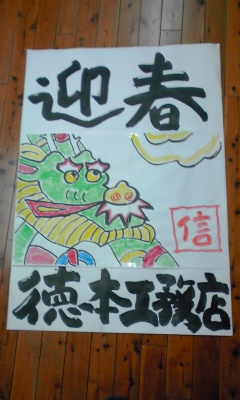 迎春
信
徳本工務店